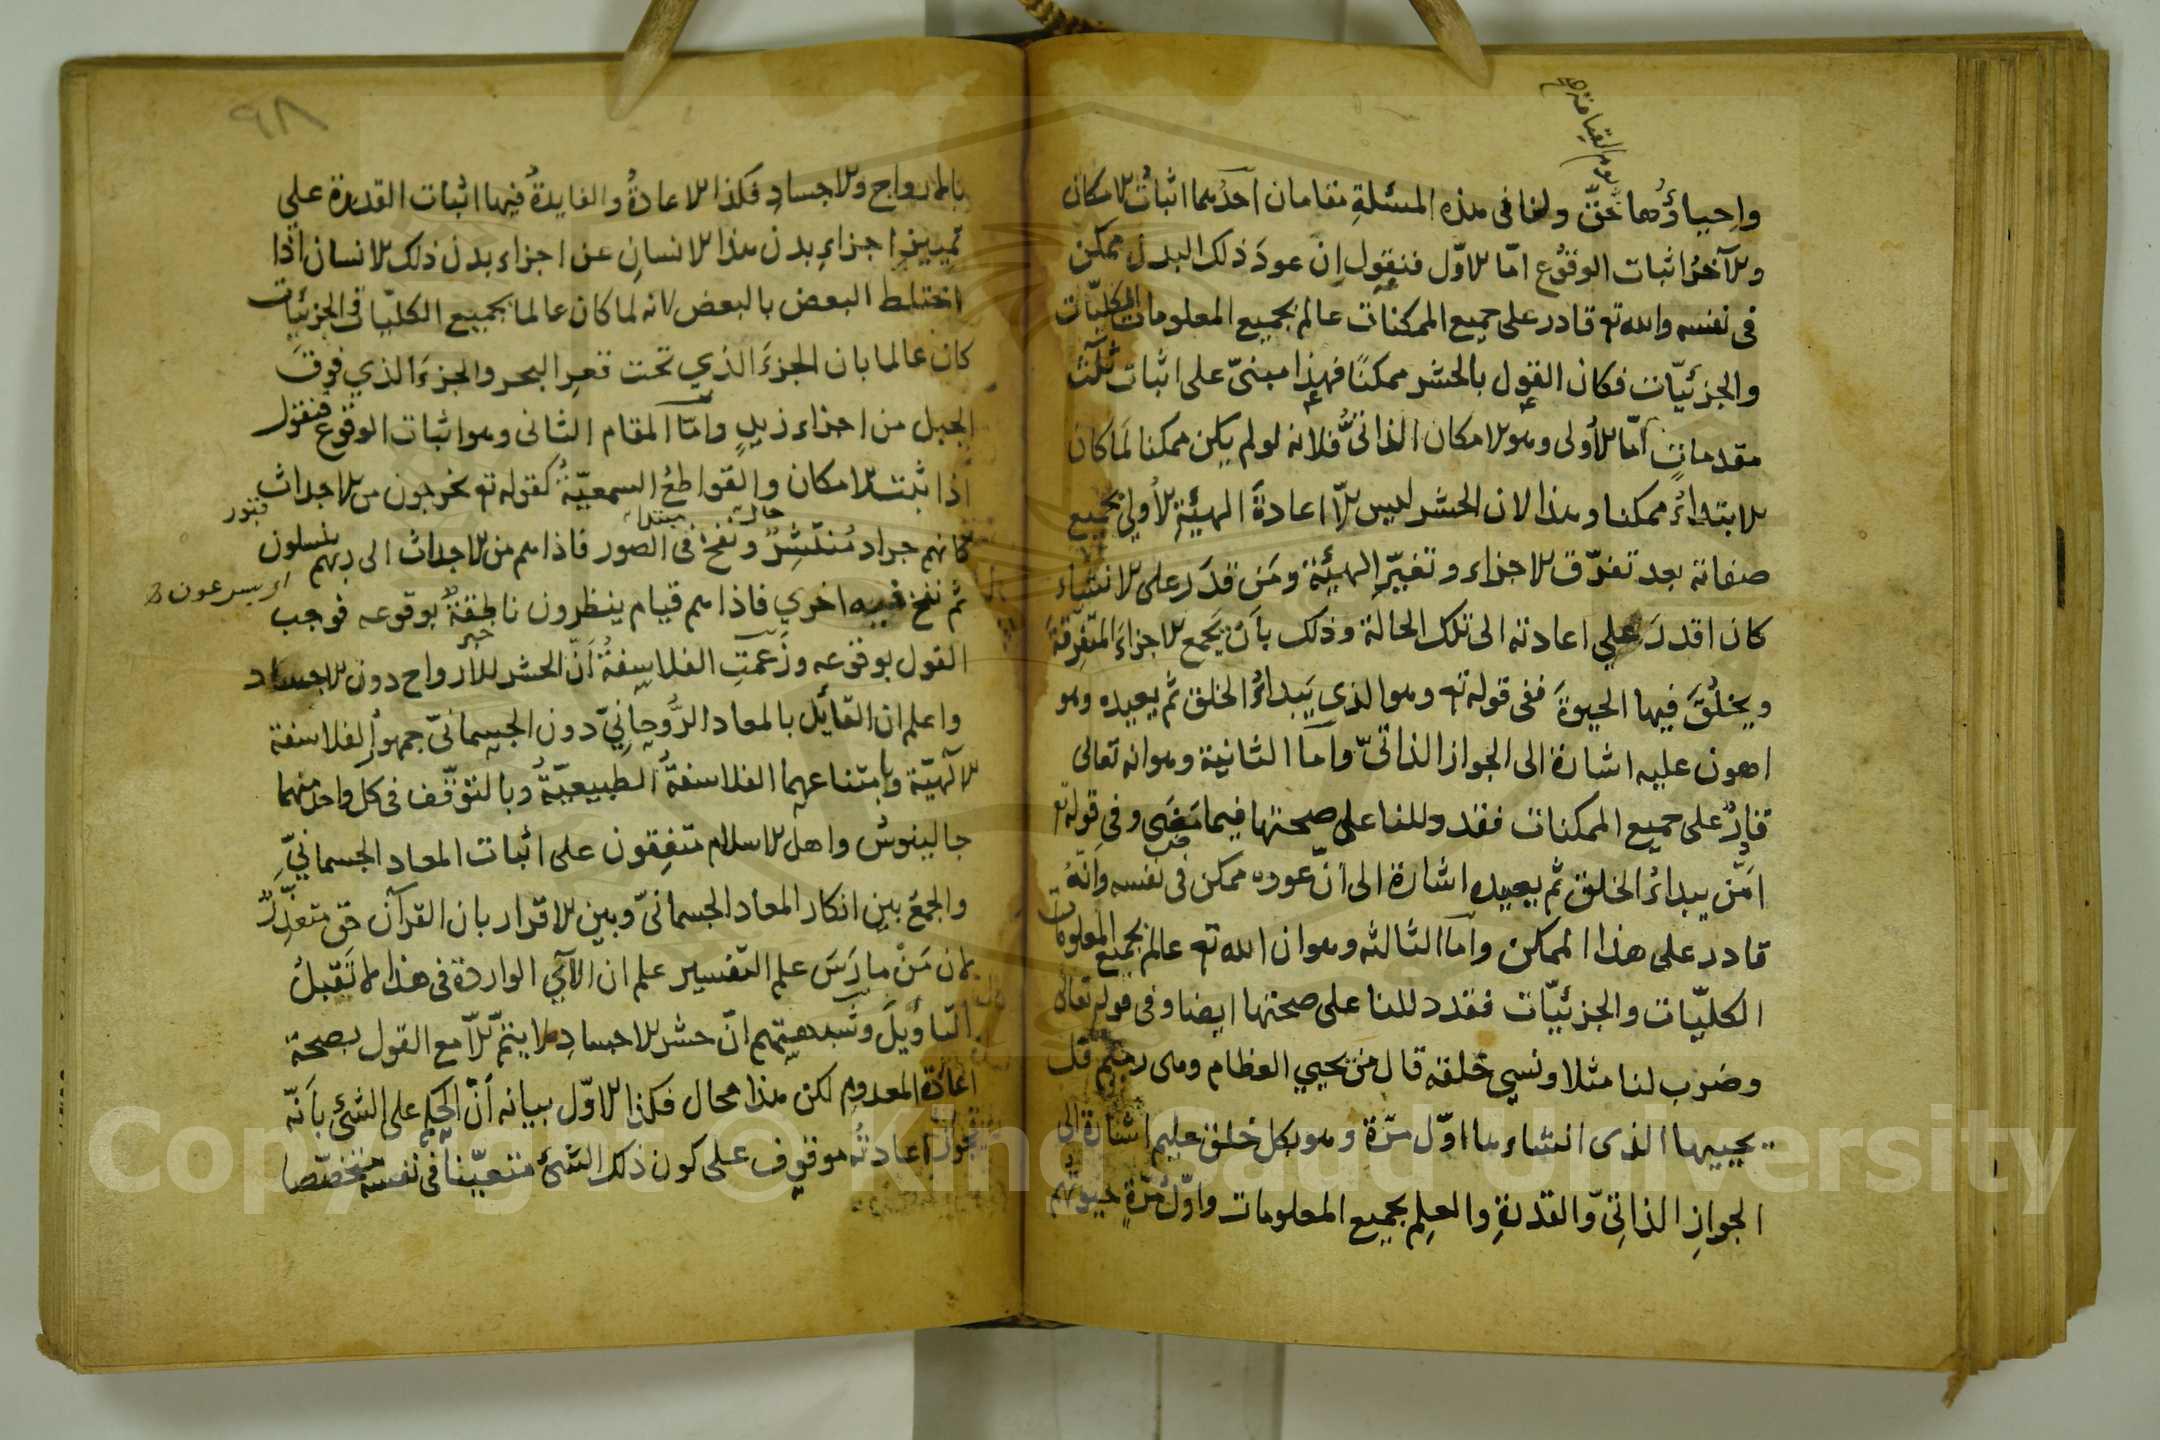 يوم القيامة صح
واحياؤهما حق ولنا فى هذه المسئلة مقامان احدهما اثبات الامكان
والآخر اثبات الوقوع امّا الاوّل فنقول انّ عود ذلك البدن ممكن
فى نفسه والله تع قادر على جميع الممكنات عالم بجميع المعلومات الكليّات
والجزئيّات فكان القول بالحشر ممكنًا فهذا مبنىّ على اثبات ثلث
مقدمات امّا الاولى وهو الامكان الذاتىّ فلانه لو لم يكن ممكنا لما كان
الابتداء ممكنا وهذا لان الحشر ليس الّا اعادة الهيئة الاولي بجميع
صفاته بعد تفرّق الاجزاء وتغيّر الهيئة ومن قدر على الانشاء
كان اقدر علي اعادته الى تلك الحالة وذلك بأن يجمع الاجزاء المتفرقة
ويخلق فيها الحيوة ففى قوله تع وهو الذي يبداءُ الخلق ثم يعيده وهو
اهون عليه اشارة الى الجواز الذاتىّ وامّا الثانية وهو انه تعالى
قادرٌ على جميع الممكنات فقد دللنا على صحتها فيما مضى وفي قوله تع
امّن يبداءُ الخلق ثم يعيده اشارة الى انّ عوده ممكن فى نفسه وانّه
قادر على هذا الممكن وامّا الثالثه وهو ان الله تع عالم بجميع المعلومات
الكليّات والجزئيّات فقد دللنا على صحتها ايضا وفى قوله تعالى
وضرب لنا مثلا ونسي خلقه قال من يحيي العظام وهى رميم قل
يحييها الذى انشاءها اوّل مرّة وهو بكل خلق عليم اشارة الى
الجواز الذاتىّ والقدرة والعلم بجميع المعلومات واوّل مرّة حيوتهم
٩٨
بالارواح والاجساد فكذا الاعادة والفايدة فيها اثبات القدرة علي
تمييز اجزاء بدن هذا الانسان عن اجزاء بدن ذلك الانسان اذا
اختلط البعض بالبعض لانه لما كان عالما بجميع الكليّات والجزئيات
كان عالما بان الجزء الذي تحت قعر البحر والجزء الذي فوق
الجبل من اجزاء زيد وامّا المقام الثانى وهو اثبات الوقوع فنقول
اذا ثبت الامكان والقواطع السمعيّة كقوله تع يخرجون من الاجداث
قبور
كانهم جراد منتشر ونفخ فى الصور فاذا هم من الاجداث الى ربهم ينسلون
اى يسرعون
ثم نفخ فيه اخري فاذا هم قيام ينظرون ناطقة بوقوعه فوجب
خبر
القول بوقوعه وزعمت الفلاسفة انّ الحشر للارواح دون الاجساد
واعلم ان القائل بالمعاد الرّوحانيّ دون الجسمانيّ جمهور الفلاسفة
الآلهيّة وبامتناعهما الفلاسفة الطبيعيّة وبالتوقّف فى كل واحد منهما
جالينوس واهل الاسلام متفقون على اثبات المعاد الجسمانيّ
والجمع بين انكار المعاد الجسمانىّ وبين الاقرار بان القرآن حق متعذّر
لان من مارس علم التفسير علم ان الآي الواردة فى هذا لا تقبل
التأويل وشبهتهم انّ حشر الاجساد لا يتمّ الّا مع القول بصحة
اعادة المعدوم لكن هذا محال فكذا الاوّل بيانه انّ الحكم على الشئ بأنّه
يجوز اعادته موقوف على كون ذلك الشئ متعيّنا فى نفسه متخصّصا